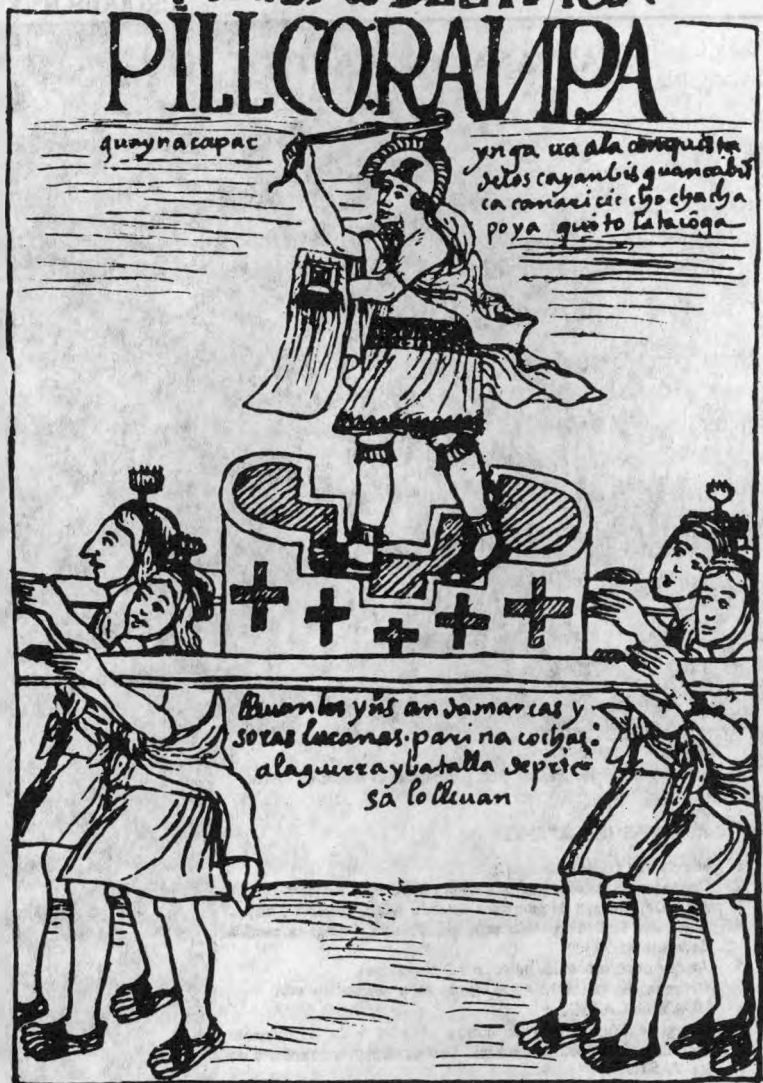 PILLCORANPA
guayna capac
ynga ua a la conquista
de los cayanbis guancabil
ca canari cicho chacha
poya quito lataco͞ga
lleuan los yn͞s andamarcas y
soras lucanas parinacochas:
a la guerra y batalla de prie
sa lo lleuan